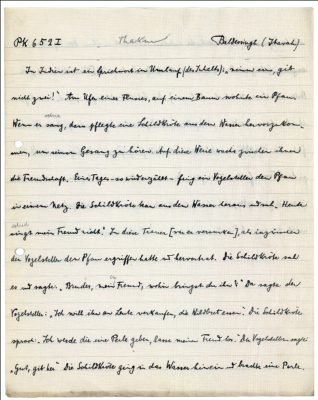 PK 652 I Thakur Baldevsingh (Tharah)
In Indien ist ein Sprichwort im Umlauf (des Inhalts): „nimm ein, gib
nicht frei!" Am Ufer eines Flusses, auf einem Baum wohnte ein Pfau.
Wenn er sang, dann pflegte eine Schildkröte aus dem Wasser hervorzukom-
men, um seinen Gesang zu hören. Auf diese Weise wuchs zwischen ihnen
die Freundschaft. Eines Tages – so wird erzählt – fing ein Vogelsteller den Pfau
in einem Netz. Die Schildkröte kam aus dem Wasser heraus und sah: Heute
singt mein Freund nicht. In diese Trauer [war er versunken], als inzwischen
der Vogelsteller den Pfau ergriffen hatte und hervortrat. Die Schildkröte sah
es und sagte: „Bruder, mein Freund, wohin bringst du ihn?" Da sagte der
Vogelsteller: „Ich will ihn an Leute verkaufen, die Wildbret essen." Die Schildkröte
sprach: „Ich werde dir eine Perle geben, lasse meinen Freund los." Der Vogelsteller sagte:
„Gut, gib her." Die Schildkröte ging in das Wasser hinein und brachte eine Perle.